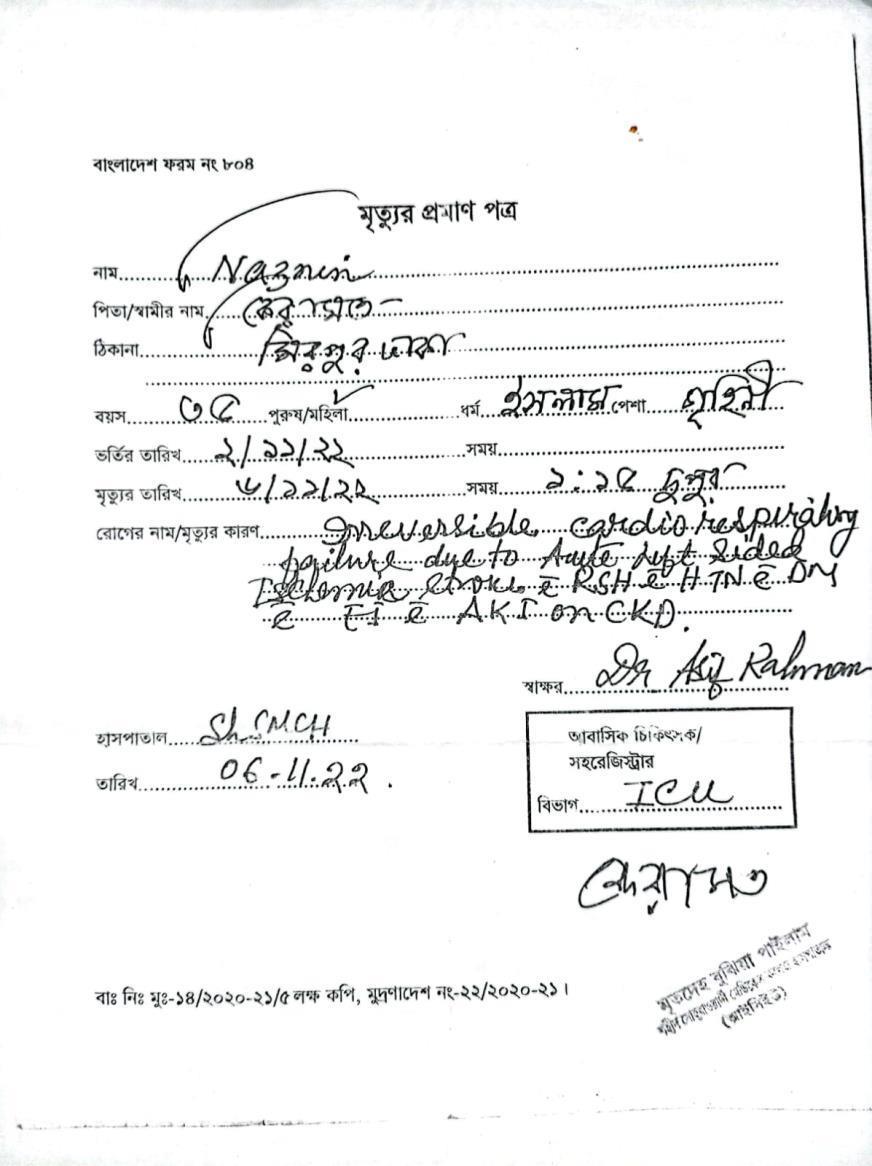 বাংলাদেশ ফরম নং ৮০৪
মৃত্যুর প্রমাণ পত্র
নাম Nazmin
পিতা/স্বামীর নাম কেরামত
ঠিকানা মিরপুর ঢাকা
বয়স ৩৫ পুরুষ/মহিলা ধর্ম ইসলাম পেশা গৃহিনী
ভর্তির তারিখ ২/১১/২২ সময়
মৃত্যুর তারিখ ৬/১১/২২ সময় ১:১৫ দুপুর
রোগের নাম/মৃত্যুর কারণ Irreversible cardiorespiratory
failure due to Acute left sided
Ischemic stroke c̄ RSH c̄ HTN c̄ DM
c̄ EI c̄ AKI on CKD.
স্বাক্ষর Dr Asif Rahman
হাসপাতাল ShSMCH
তারিখ 06-11-22.
আবাসিক চিকিৎসক/
সহরেজিস্ট্রার
বিভাগ ICU
কেরামত
মৃতদেহ বুঝিয়া পাইলাম
শহীদ সোহরাওয়ার্দী মেডিকেল কলেজ হাসপাতাল
(আইসিইউ)
বাঃ নিঃ মুঃ-১৪/২০২০-২১/৫ লক্ষ কপি, মুদ্রণাদেশ নং-২২/২০২০-২১।